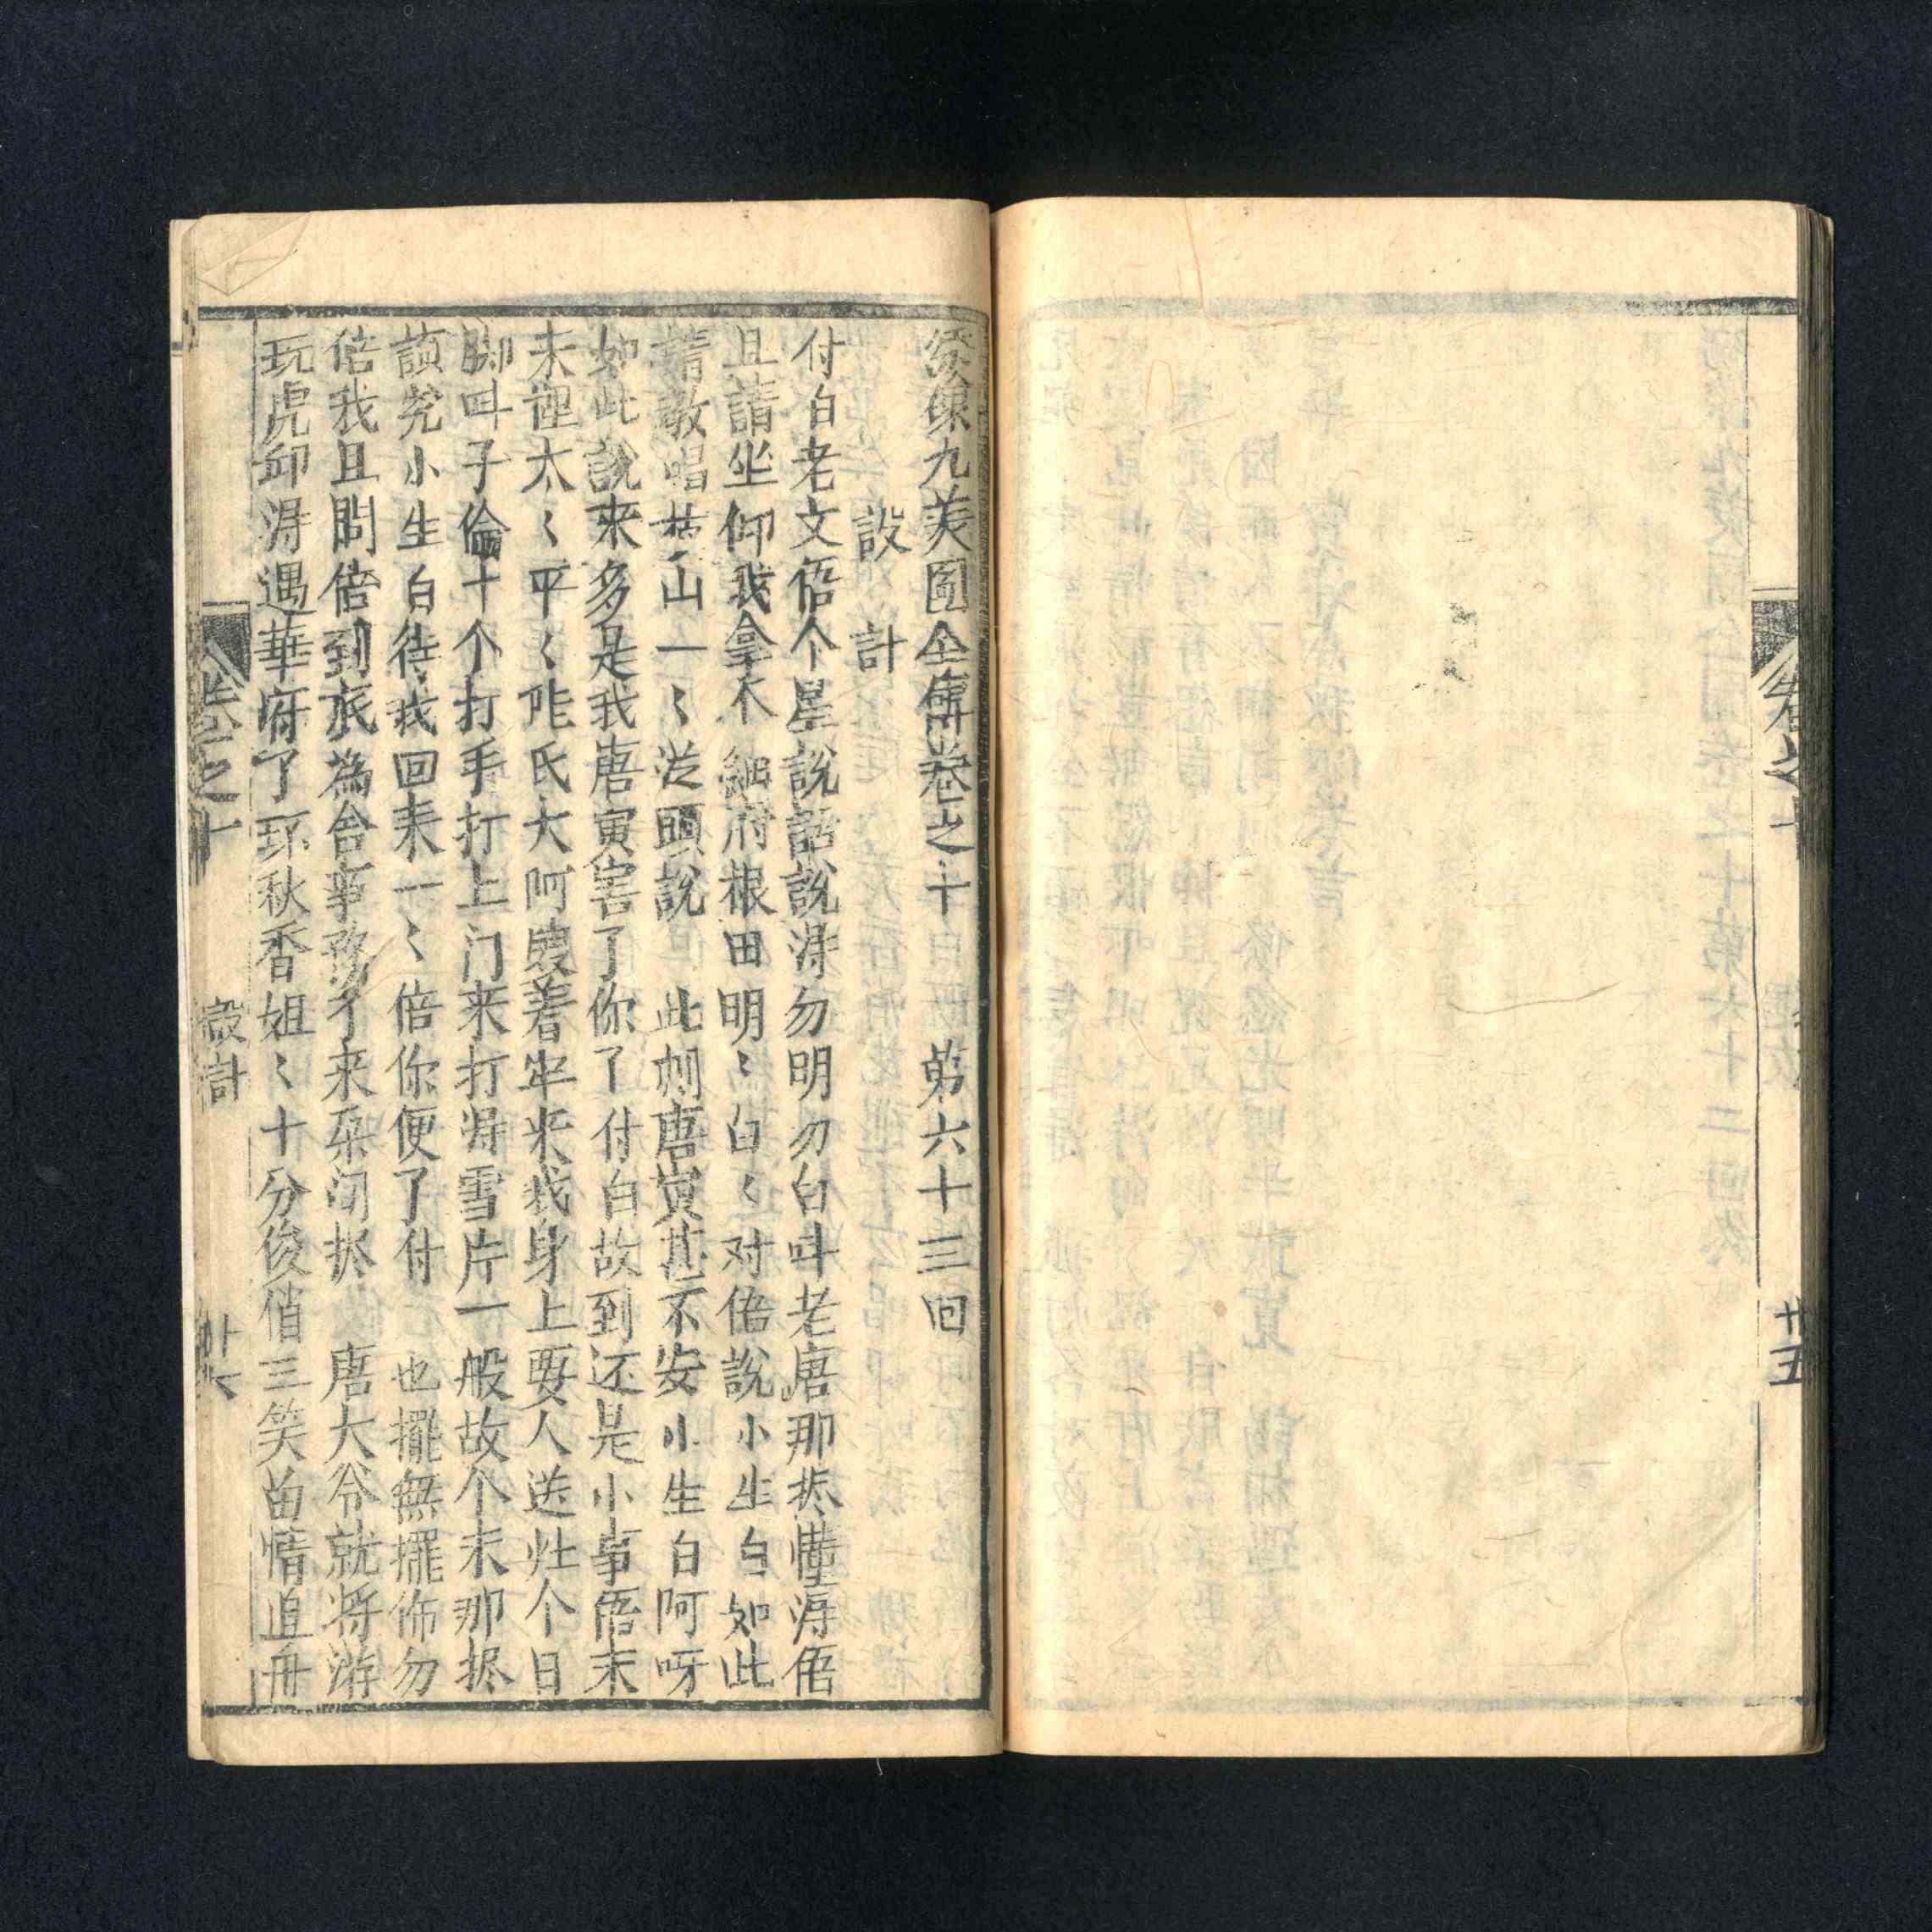 卷之十
十五
綉像九美圖全傳卷之十 第六十三回
設計
付白老文俉个星說話說淂勿明勿白呌老唐那㧪懂淂俉
且請坐仰我拿不細府根田明〻白〻对俉說小生白如此
請教唱 山一〻从頭說 此刻唐寅甚不安小生白阿呀
如此說來多是我唐寅害了你了付白故到还是小事俉末
未 太〻平〻陸氏大阿嫂着牢来我身上要人送灶个日
脚呌子倫十个打手打上门来打淂雪片一般故个末那㧪
該 小生白待我回来一〻倍你便了付 也擺無擺佈勿
倍我且問倍到底為啥事務了来 㧪 唐大爷就将游
玩虎邱淂遇華府了环秋香姐〻十分俊俏三笑畄情追舟
卷之十
設計